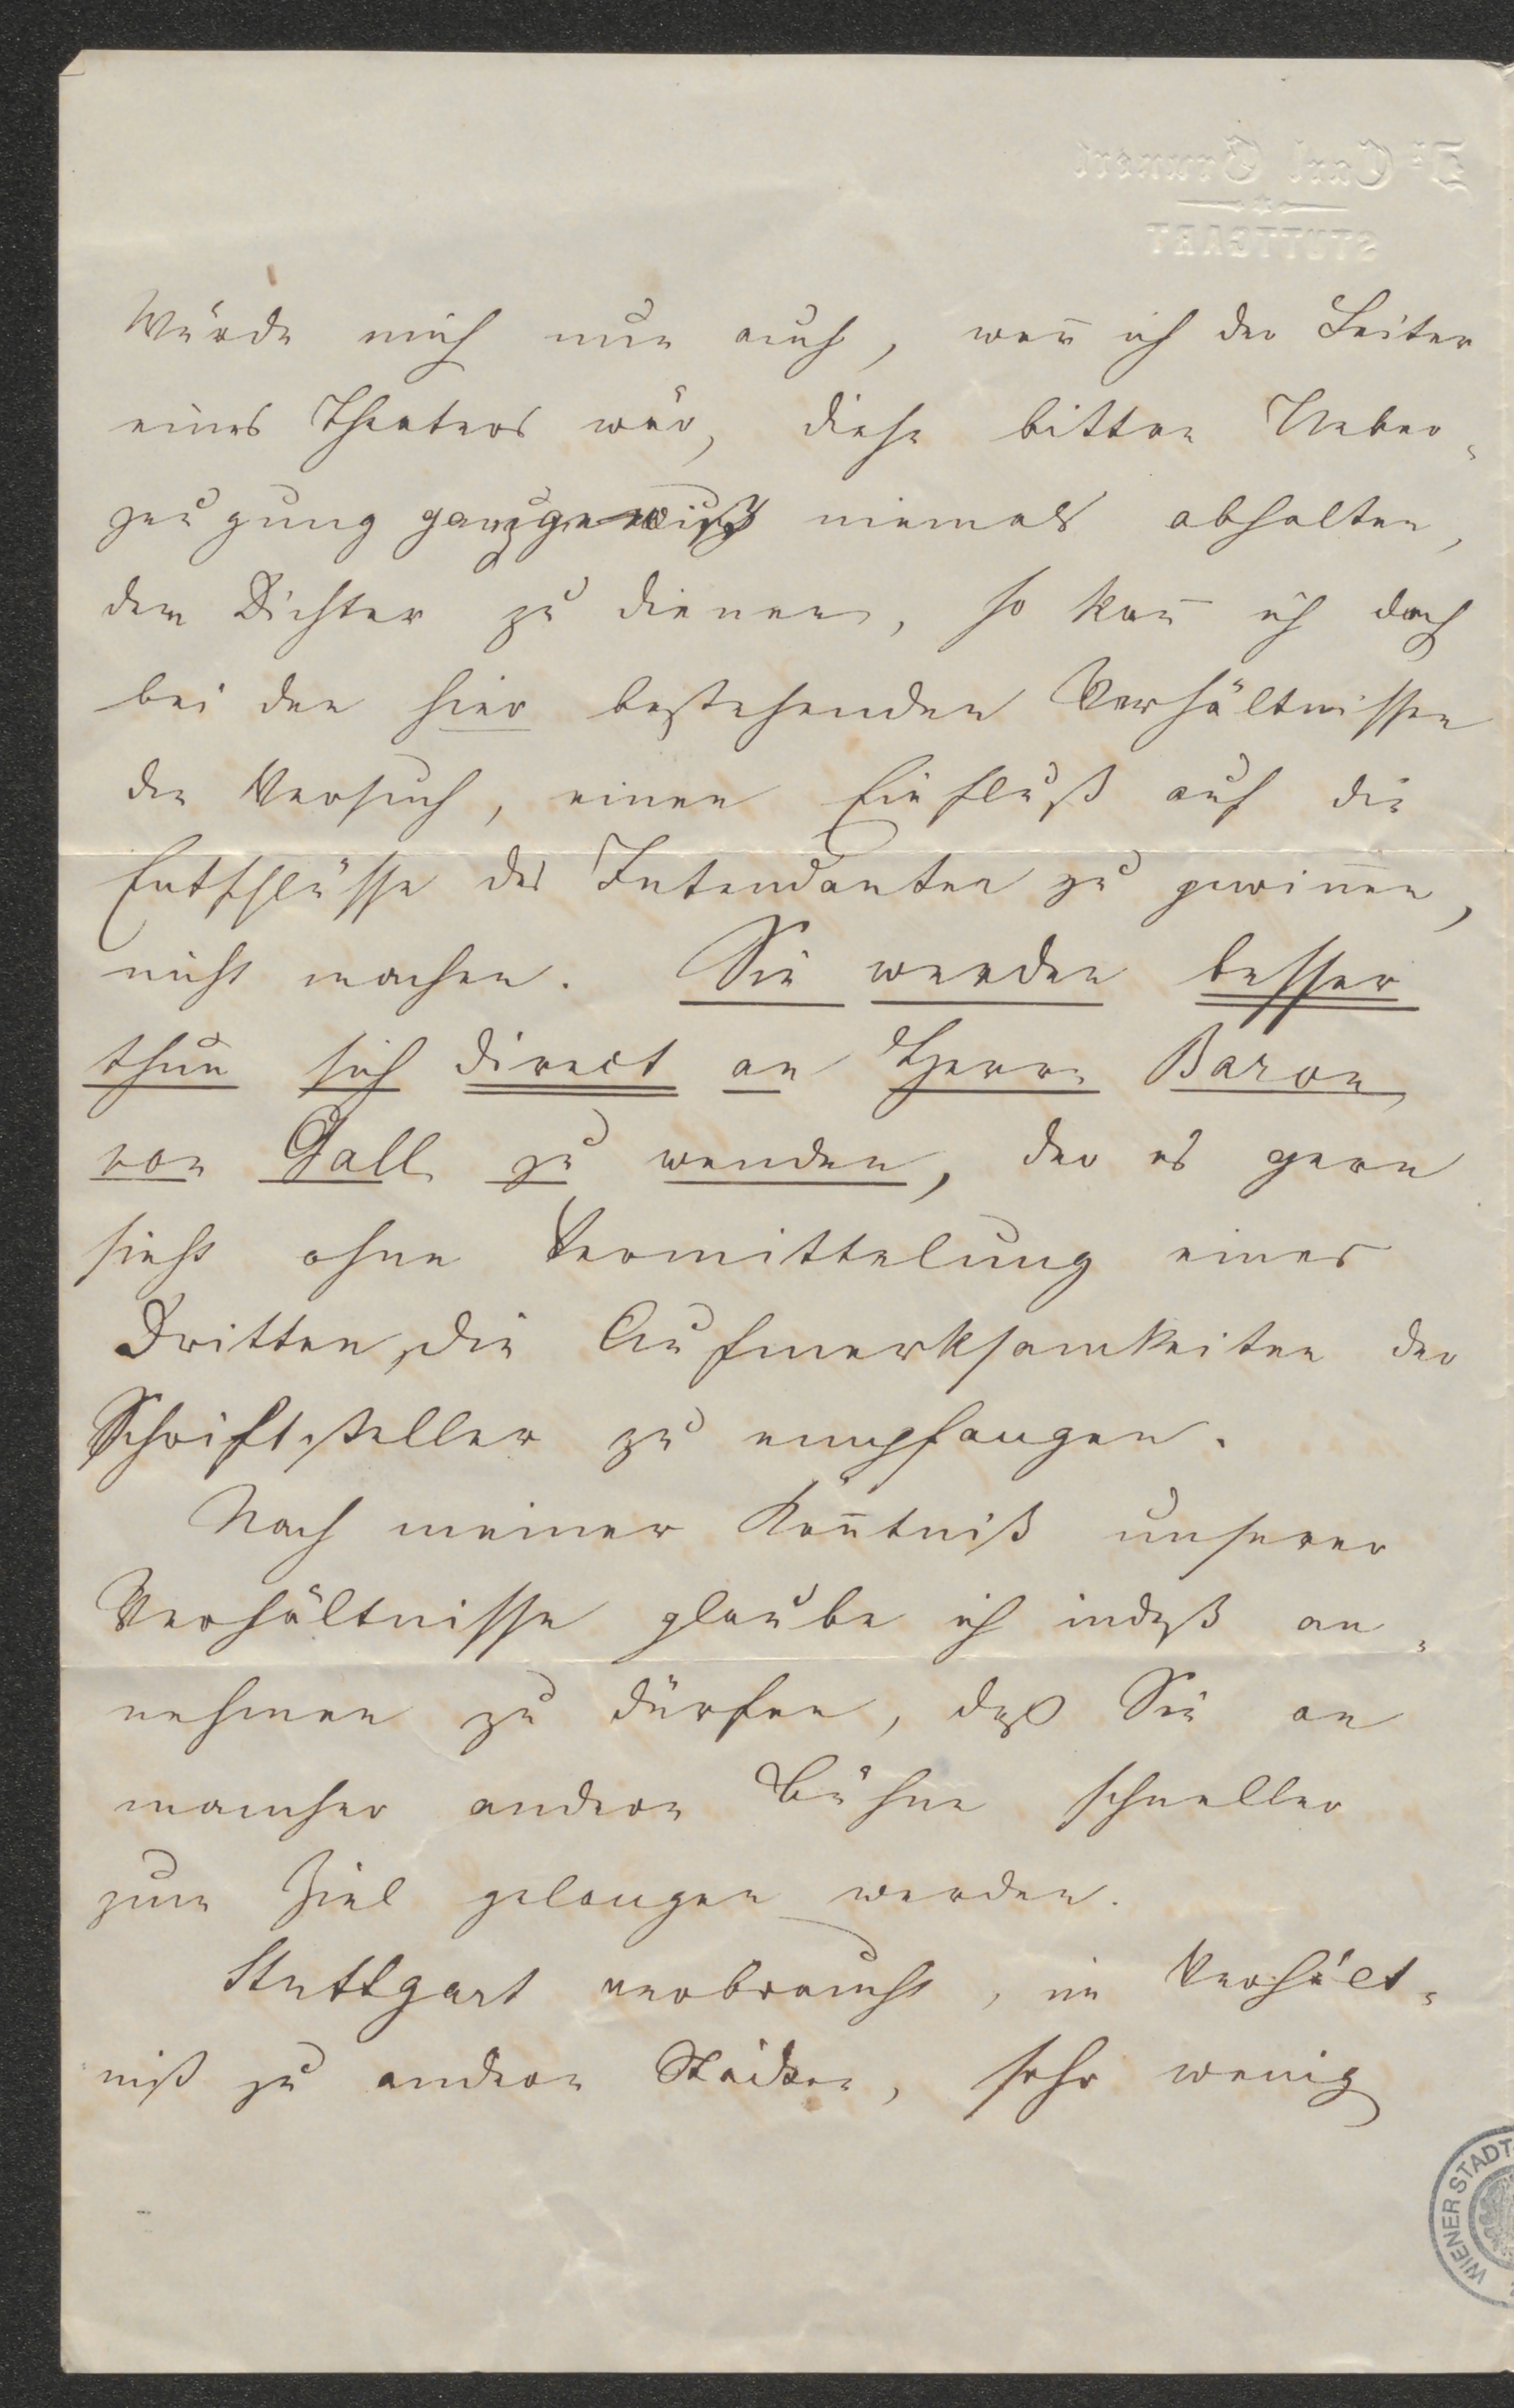 Dr Carl Grunert
STUTTGART
Würde mich nun auch, wen̄ ich der Leiter
eines Theaters wär, diese bittre Ueber-
zeugung ganz gewiß niemals abhalten,
dem Dichter zu dienen, so kan̄ ich doch
bei den hier bestehenden Verhältnissen
den Versuch, einen Einfluß auf die
Entschlüsse des Intendanten zu gewin̄en,
nicht machen. Sie werden besser
thun sich direct an Herrn Baron
von Gall zu wenden, der es gern
sieht ohne Vermittelung eines
Dritten, die Aufmerksamkeiten der
Schriftsteller zu empfangen.
Nach meiner Ken̄tniß unserer
Verhältnisse glaube ich indeß an-
nehmen zu dürfen, daß Sie an
mancher andern Bühne schneller
zum Ziel gelangen werden.
Stuttgart verbraucht, im Verhält-
niß zu andern Städten, sehr wenig
WIENER STADT-